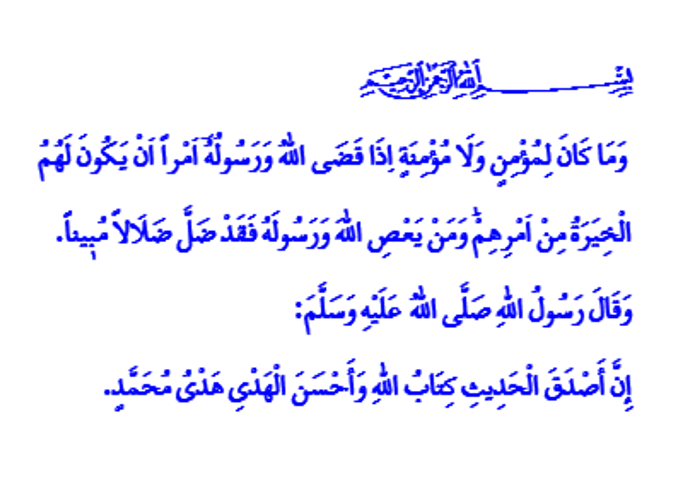 بِسْمِ اللهِ الرَّحْمٰنِ الرَّحِيمِ
وَمَا كَانَ لِمُؤْمِنٍ وَلَا مُؤْمِنَةٍ اِذَا قَضَى اللهُ وَرَسُولُهُٓ اَمْراً اَنْ يَكُونَ لَهُمُ
الْخِيَرَةُ مِنْ اَمْرِهِمْۜ وَمَنْ يَعْصِ اللهَ وَرَسُولَهُ فَقَدْ ضَلَّ ضَلَالاً مُبِيناً.
وَقَالَ رَسُولُ اللهِ صَلَّى اللهُ عَلَيْهِ وَسَلَّمَ:
إِنَّ أَصْدَقَ الْحَدِيثِ كِتَابُ اللهِ وَأَحْسَنَ الْهَدْىِ هَدْىُ مُحَمَّدٍ.